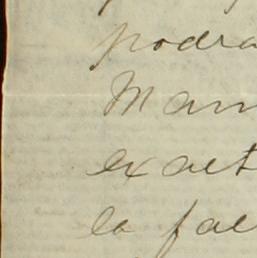 podra
Man
exact
la fal